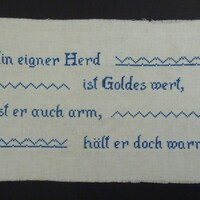 Ein eigner Herd
ist Goldes wert,
ist er auch arm,
hält er doch warm